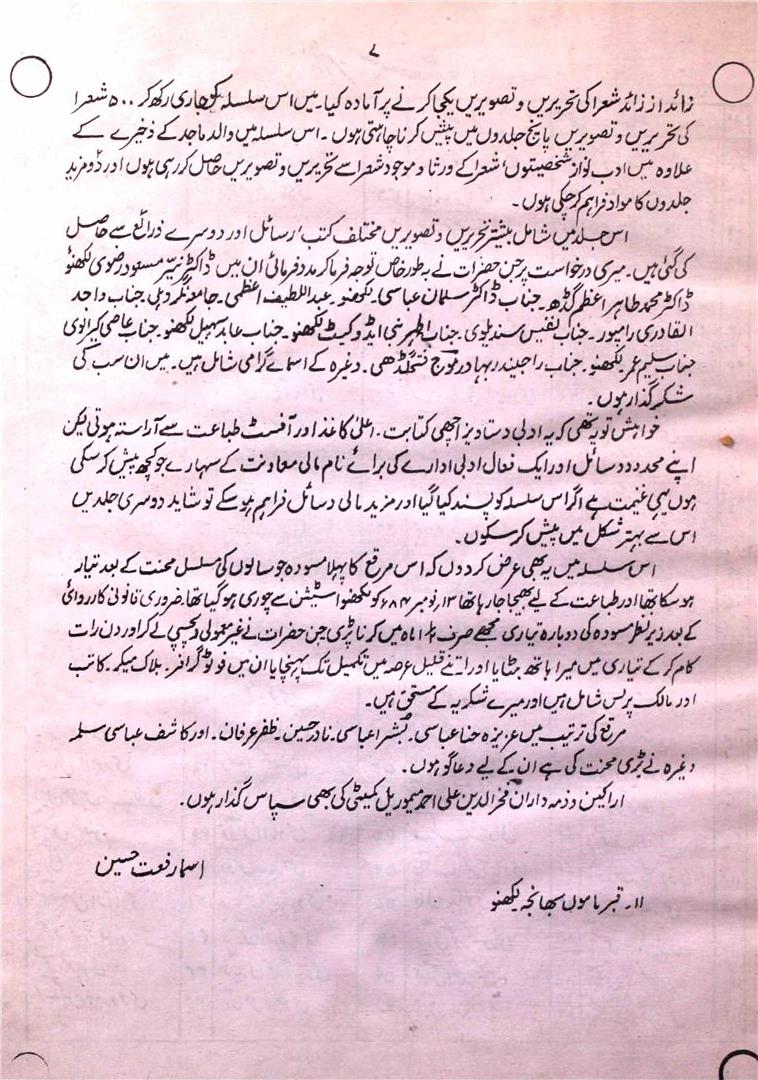 ۷
زائد از زائد شعرا کی تحریریں و تصویریں یکجا کرنے پر آمادہ کیا۔ میں اس سلسلہ کو جاری رکھ کر ۵۰۰ شعرا
کی تحریریں و تصویریں پانچ جلدوں میں پیش کرنا چاہتی ہوں۔ اس سلسلہ میں والد ماجد کے ذخیرے کے
علاوہ میں ادب نواز شخصیتوں، شعرا کے ورثا و موجود شعرا سے تحریریں و تصویریں حاصل کر رہی ہوں اور دو مزید
جلدوں کا مواد فراہم کر چکی ہوں۔
اس جلد میں شامل بیشتر تحریریں و تصویریں مختلف کتب، رسائل اور دوسرے ذرائع سے حاصل
کی گئی ہیں۔ میری درخواست پر جن حضرات نے بطور خاص توجہ فرما کر مدد فرمائی ان میں ڈاکٹر نیر مسعود رضوی لکھنؤ
ڈاکٹر محمد طاہر اعظم گڈھ۔ جناب ڈاکٹر سلمان عباسی۔ لکھنؤ۔ عبداللطیف اعظمی۔ جامعہ نگر دہلی۔ جناب واجد
القادری رامپور۔ جناب نفیس سندیلوی۔ جناب اطہر نبی ایڈوکیٹ لکھنؤ۔ جناب عابد سہیل لکھنؤ۔ جناب عاصی کیرالوی
جناب سلیم عمر لکھنؤ۔ جناب راجیندر بہادر موج فتحگڈھی۔ وغیرہ کے اسمائے گرامی شامل ہیں۔ میں ان سب کی
شکر گذار ہوں۔
خواہش تو یہ تھی کہ یہ ادبی دستاویز اچھی کتابت۔ اعلیٰ کاغذ اور آفسٹ طباعت سے آراستہ ہوتی لیکن
اپنے محدود وسائل اور ایک فعال ادبی ادارے کی برائے نام مالی معاونت کے سہارے جو کچھ پیش کر سکی
ہوں یہی غنیمت ہے اگر اس سلسلہ کو پسند کیا گیا اور مزید مالی وسائل فراہم ہو سکے تو شاید دوسری جلدیں
اس سے بہتر شکل میں پیش کر سکوں۔
اس سلسلہ میں یہ بھی عرض کردوں کہ اس مرقع کا پہلا مسودہ جو سالوں کی مسلسل محنت کے بعد تیار
ہو سکا تھا اور طباعت کے لیے بھیجا جا رہا تھا ۱۳ر نومبر ۸۴ء کو لکھنؤ اسٹیشن سے چوری ہو گیا تھا۔ ضروری قانونی کارروائی
کے بعد زیر نظر مسودہ کی دوبارہ تیاری مجھے صرف ماہ میں کرنا پڑی جن حضرات نے غیر معمولی دلچسپی لے کر اور دن رات
کام کر کے تیاری میں میرا ہاتھ بٹایا اور اتنے قلیل عرصہ میں تکمیل تک پہنچایا ان میں فوٹو گرافر۔ بلاک میکر۔ کاتب
اور مالک پریس شامل ہیں اور میرے شکریہ کے مستحق ہیں۔
مرقع کی ترتیب میں عزیزہ حنا عباسی۔ مبشرا عباسی۔ نادر حسین۔ ظفر عرفان۔ اور کاشف عباسی سلمہ
وغیرہ نے بڑی محنت کی ہے ان کے لیے دعا گو ہوں۔
اراکین و ذمہ داران فخرالدین علی احمد میموریل کمیٹی کی بھی سپاس گذار ہوں۔
اسما رفعت حسین
۱۱۔ قبر ماموں بھانجہ لکھنؤ